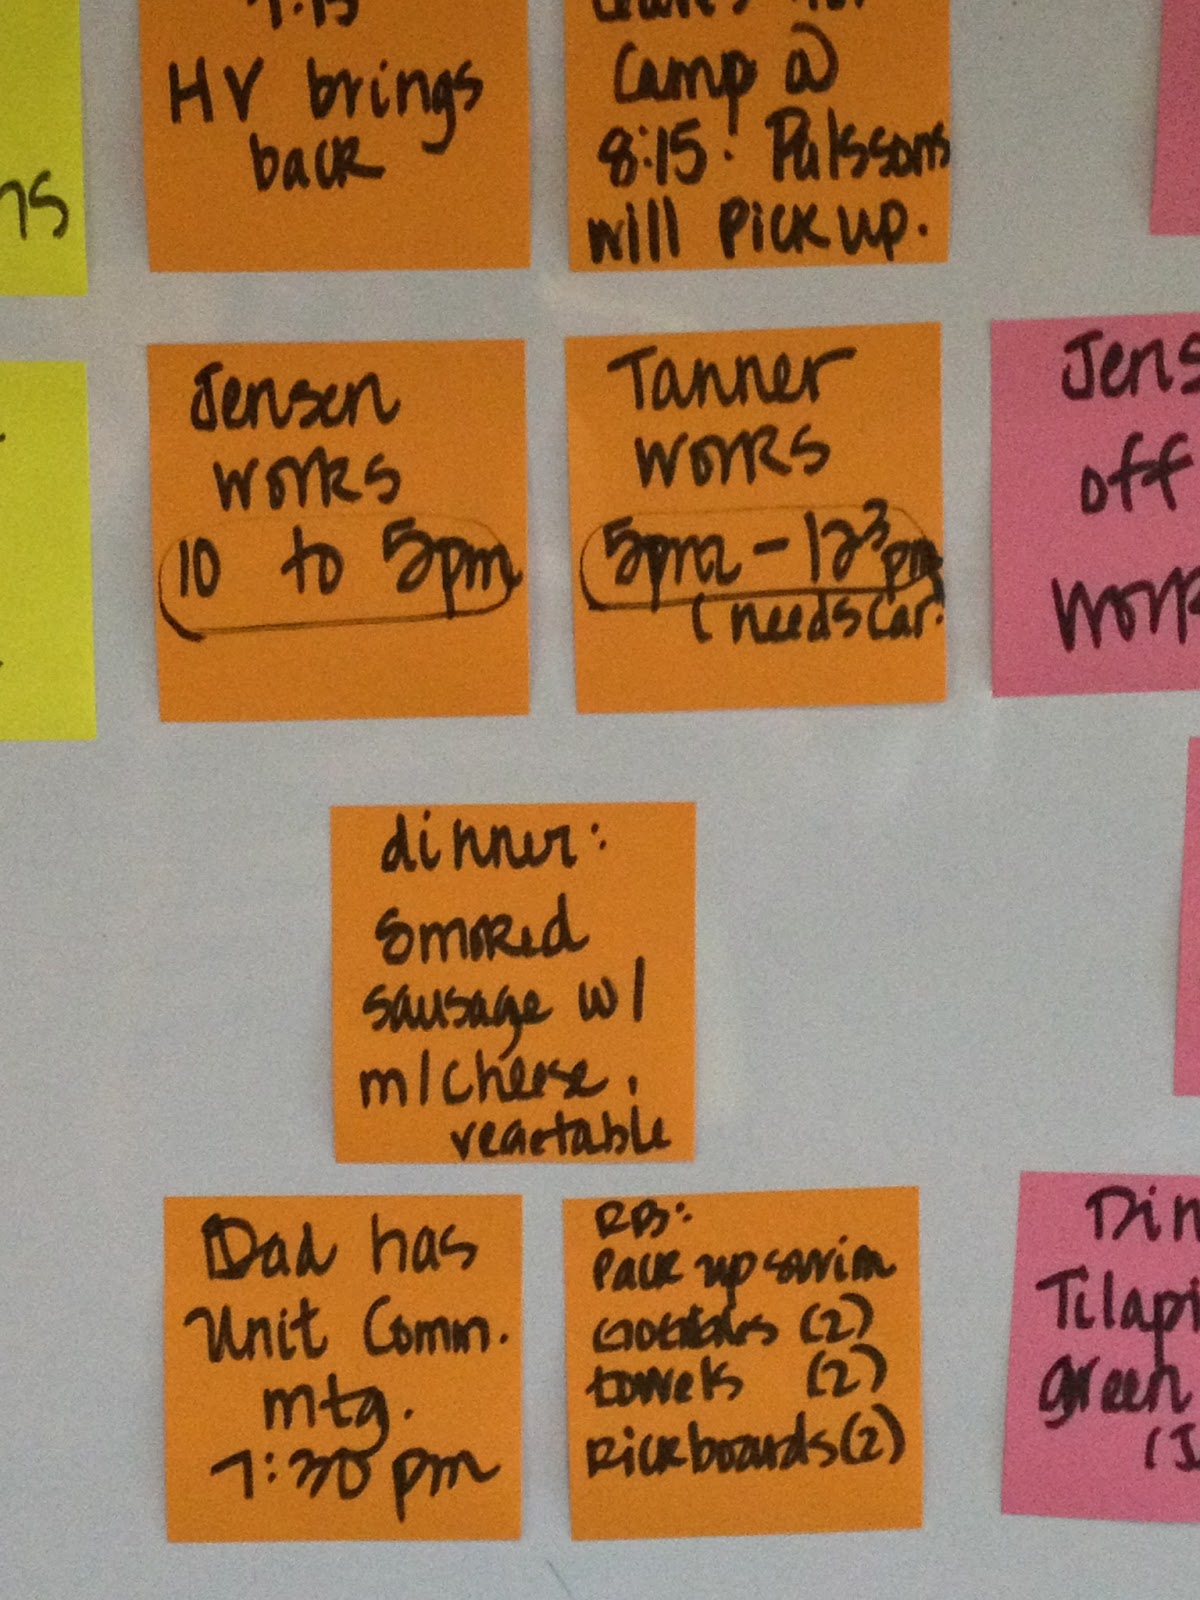 7:15
HV brings
back
Camp @
8:15.
will pick up.
ns
Jensen
works
10 to 5pm
Tanner
works
5pm - 12³pm
(needs car.
Jens
off
work
dinner:
smoked
sausage w/
m/cheese,
vegetable
Dad has
Unit Comm.
mtg.
7:30 pm
RB:
Pack up swim
goggles (2)
towels (2)
kickboards (2)
Din
Tilapi
green